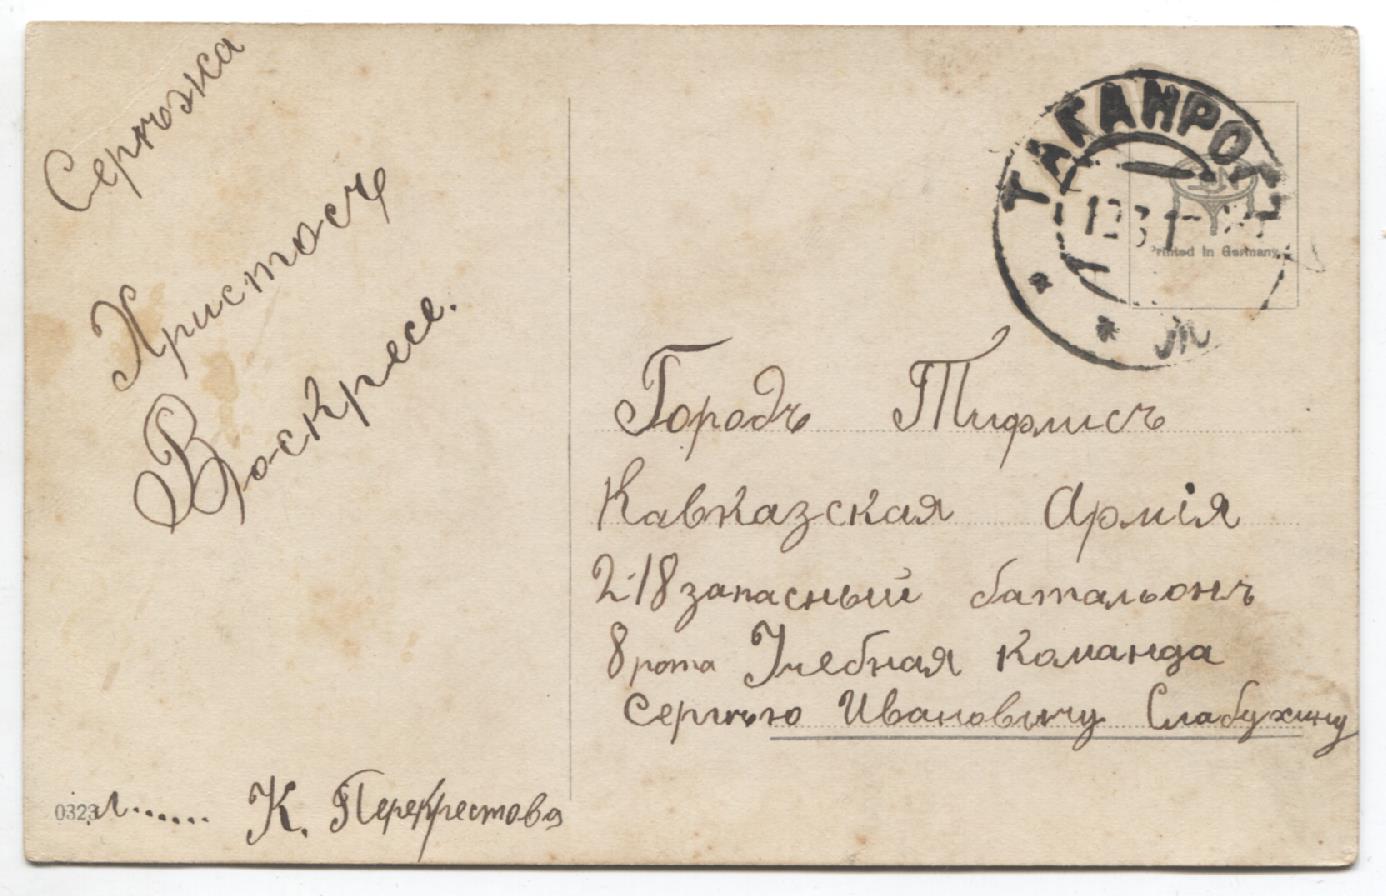 Сергѣжа
Христосъ
Воскресе.
К. Перекрестова
0323
ТАГАНРОГЪ
Printed in Germany
Городъ Тифлисъ
Кавказская Армія
218 запасный батальонъ
8 рота Учебная команда
Сергѣю Ивановичу Слабухину